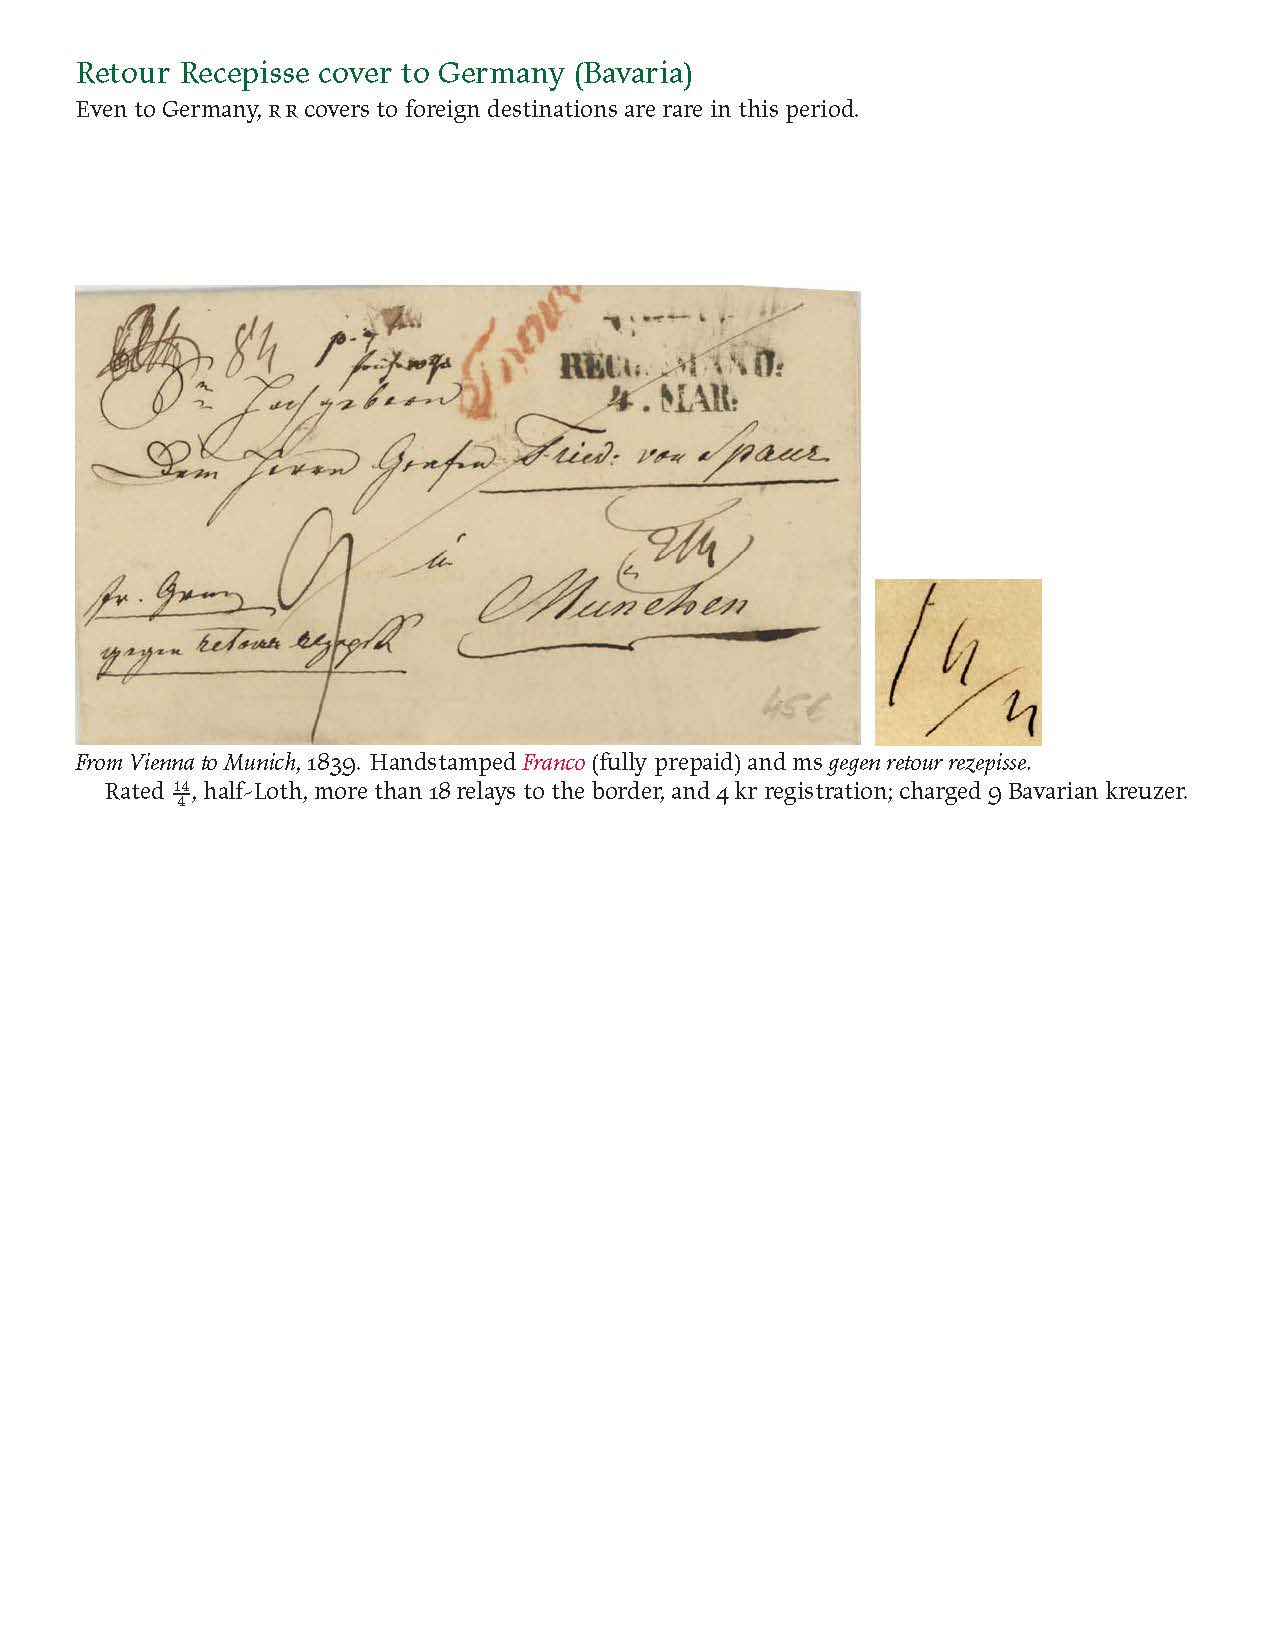 Retour Recepisse cover to Germany (Bavaria)
Even to Germany, R R covers to foreign destinations are rare in this period.
84
Franco
RECOMMAND:
4. MAR:
Hochgeborn
Dem Herrn Grafen Fried: von Spaur
in
München
fr. Grenz
gegen retour rezepiss
9
45€
14/4
From Vienna to Munich, 1839. Handstamped Franco (fully prepaid) and ms gegen retour rezepisse.
Rated 14/4, half-Loth, more than 18 relays to the border, and 4 kr registration; charged 9 Bavarian kreuzer.